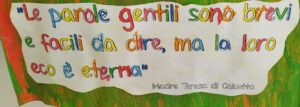 "Le parole gentili sono brevi
e facili da dire, ma la loro
eco è eterna"
Madre Teresa di Calcutta